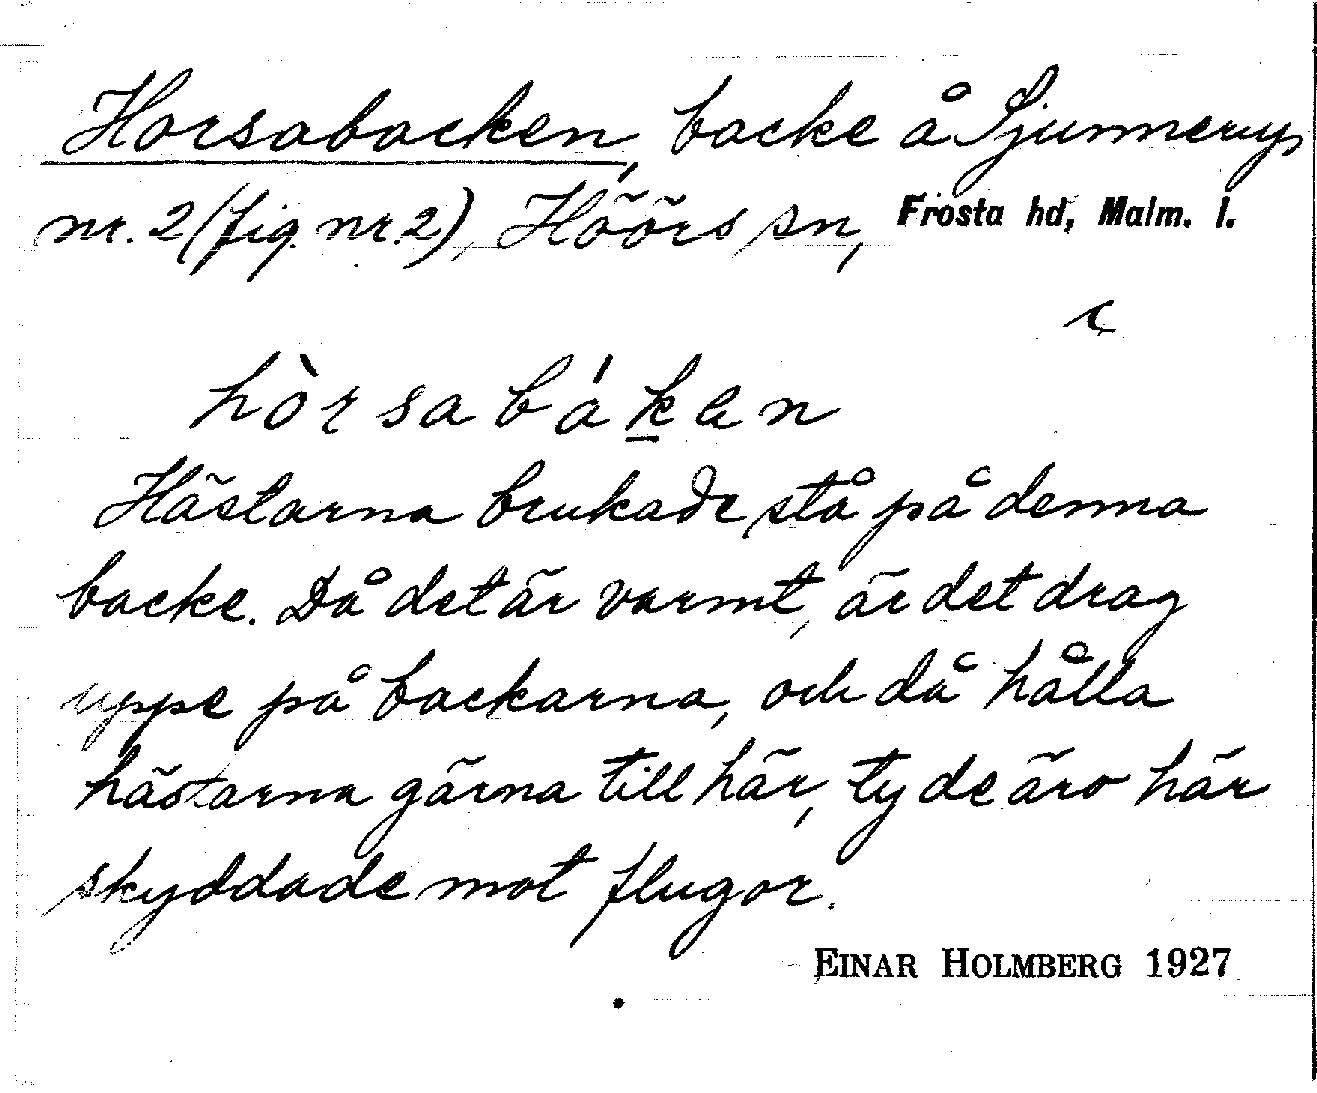 Horsabacken, backe å Sjunneryp
nr. 2 (fig. nr. 2), Höörs sn, Frosta hd, Malm. l.
hòrsabákan
Hästarna brukade stå på denna
backe. Då det är varmt, är det drag
uppe på backarna, och då hålla
hästarna gärna till här, ty de äro här
skyddade mot flugor.
EINAR HOLMBERG 1927